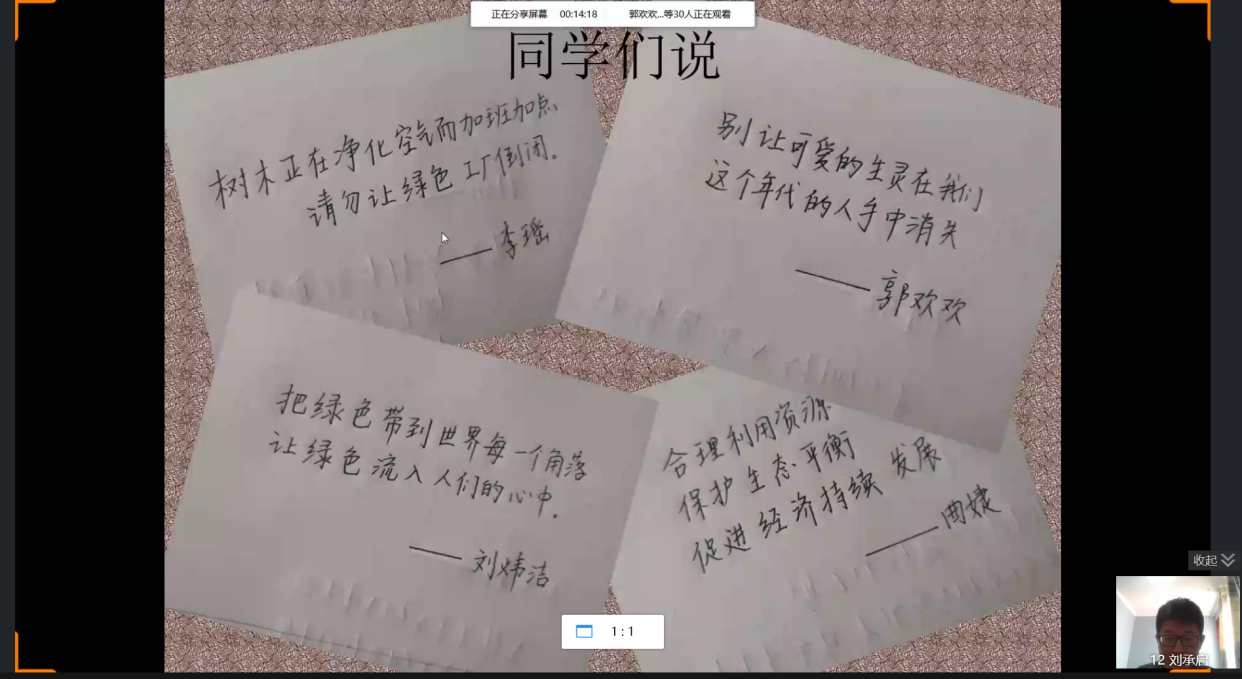 正在分享屏幕 00:14:18 郭欢欢...等30人正在观看
同学们说
树木正在净化空气而加班加点、
请勿让绿色工厂倒闭.
——李瑶
别让可爱的生灵在我们
这个年代的人手中消失
——郭欢欢
把绿色带到世界每一个角落
让绿色流入人们的心中.
——刘炜洁
合理利用资源
保护生态平衡
促进经济持续发展
——曲婕
收起
1 : 1
12 刘承启